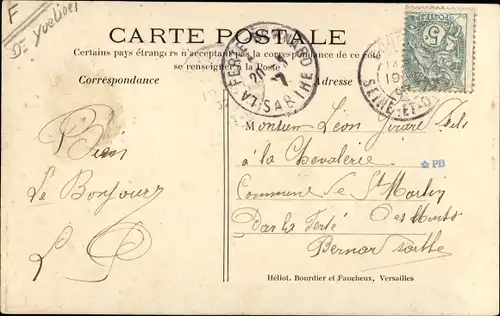 F
De Yvelines
CARTE POSTALE
Certains pays étrangers n'acceptant pas la correspondance de ce côté
se renseigner à la Poste
Correspondance
Adresse
LA FERTE-BERNARD
20
7
SARTHE
SEINE-ET-O
POSTES
5
Monsieur Léon Girard fils
à la Chevalerie
PB
Commune de St Martin
des Monts
Par la Ferté
Bernard Sarthe
Bien
Le Bonjour
Héliot. Bourdier et Faucheux, Versailles